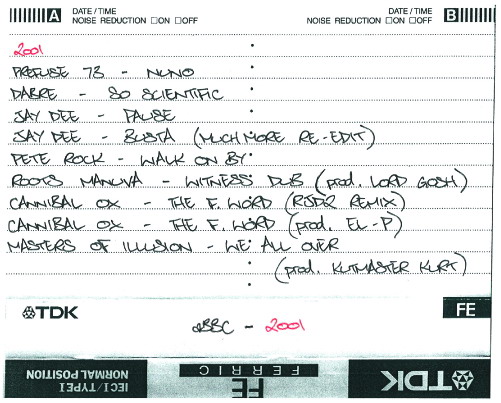 A DATE/TIME
NOISE REDUCTION □ON □OFF
DATE/TIME B
NOISE REDUCTION □ON □OFF
2001
PREFUSE 73 - NUNO
DABRE - SO SCIENTIFIC
JAY DEE - PAUSE
JAY DEE - BUSTA (MUCH MORE RE-EDIT)
PETE ROCK - WALK ON BY
ROOTS MANUVA - WITNESS DUB (prod. LORD GOSH)
CANNIBAL OX - THE F. WORD (RJD2 REMIX)
CANNIBAL OX - THE F. WORD (prod. EL-P)
MASTERS OF ILLUSION - WE ALL OVER
(prod. KUTMASTER KURT)
TDK
FE
2001
IECI/TYPEI
NORMAL POSITION
FE
FERRIC
TDK